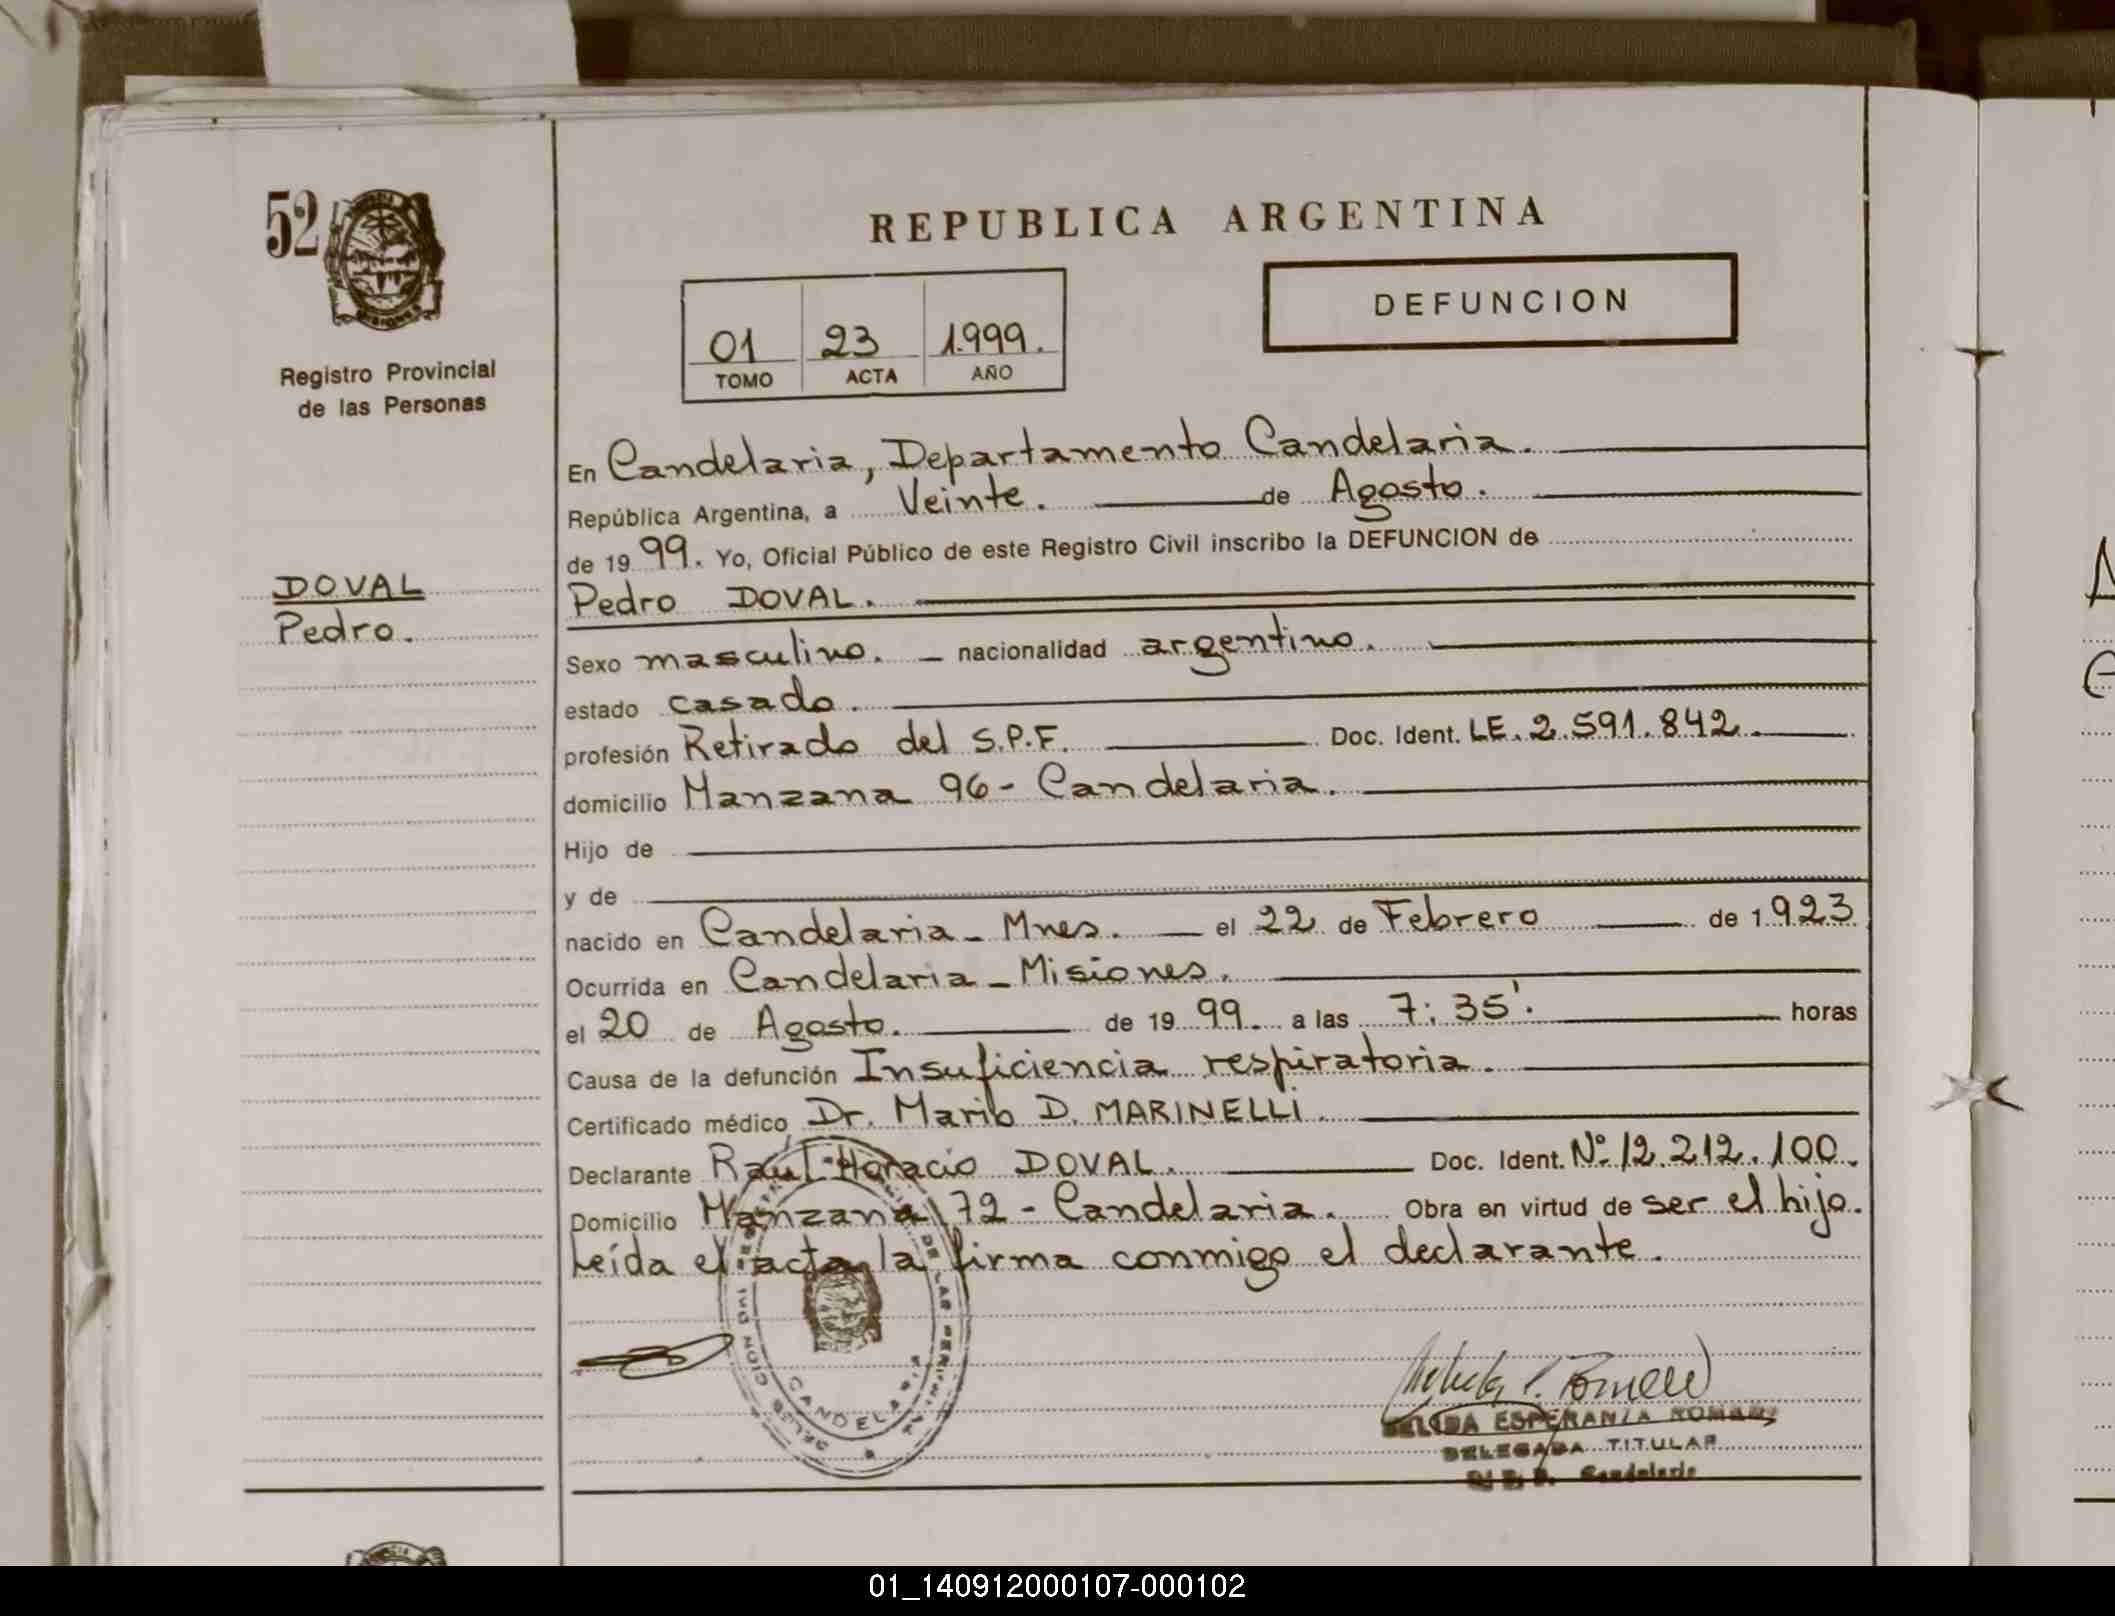 52
REPUBLICA ARGENTINA
DEFUNCION
01 23 1.999.
TOMO ACTA AÑO
Registro Provincial
de las Personas
DOVAL
Pedro.
En Candelaria, Departamento Candelaria.
República Argentina, a Veinte. de Agosto.
de 19 99. Yo, Oficial Público de este Registro Civil inscribo la DEFUNCION de
Pedro DOVAL.
Sexo masculino. nacionalidad argentino.
estado casado.
profesión Retirado del S.P.F. Doc. Ident. LE. 2.591.842.
domicilio Manzana 96 - Candelaria.
Hijo de
y de
nacido en Candelaria - Mnes. el 22 de Febrero de 1.923
Ocurrida en Candelaria - Misiones.
el 20 de Agosto. de 19 99. a las 7:35'. horas
Causa de la defunción Insuficiencia respiratoria.
Certificado médico Dr. Mario D. MARINELLI.
Declarante Raul Horacio DOVAL. Doc. Ident. Nº 12.212.100.
Domicilio Manzana 72 - Candelaria. Obra en virtud de ser el hijo.
Leída el acta la firma conmigo el declarante.
CANDELARIA
ESPERANZA
DELEGADA TITULAR
Candelaria
01_140912000107-000102